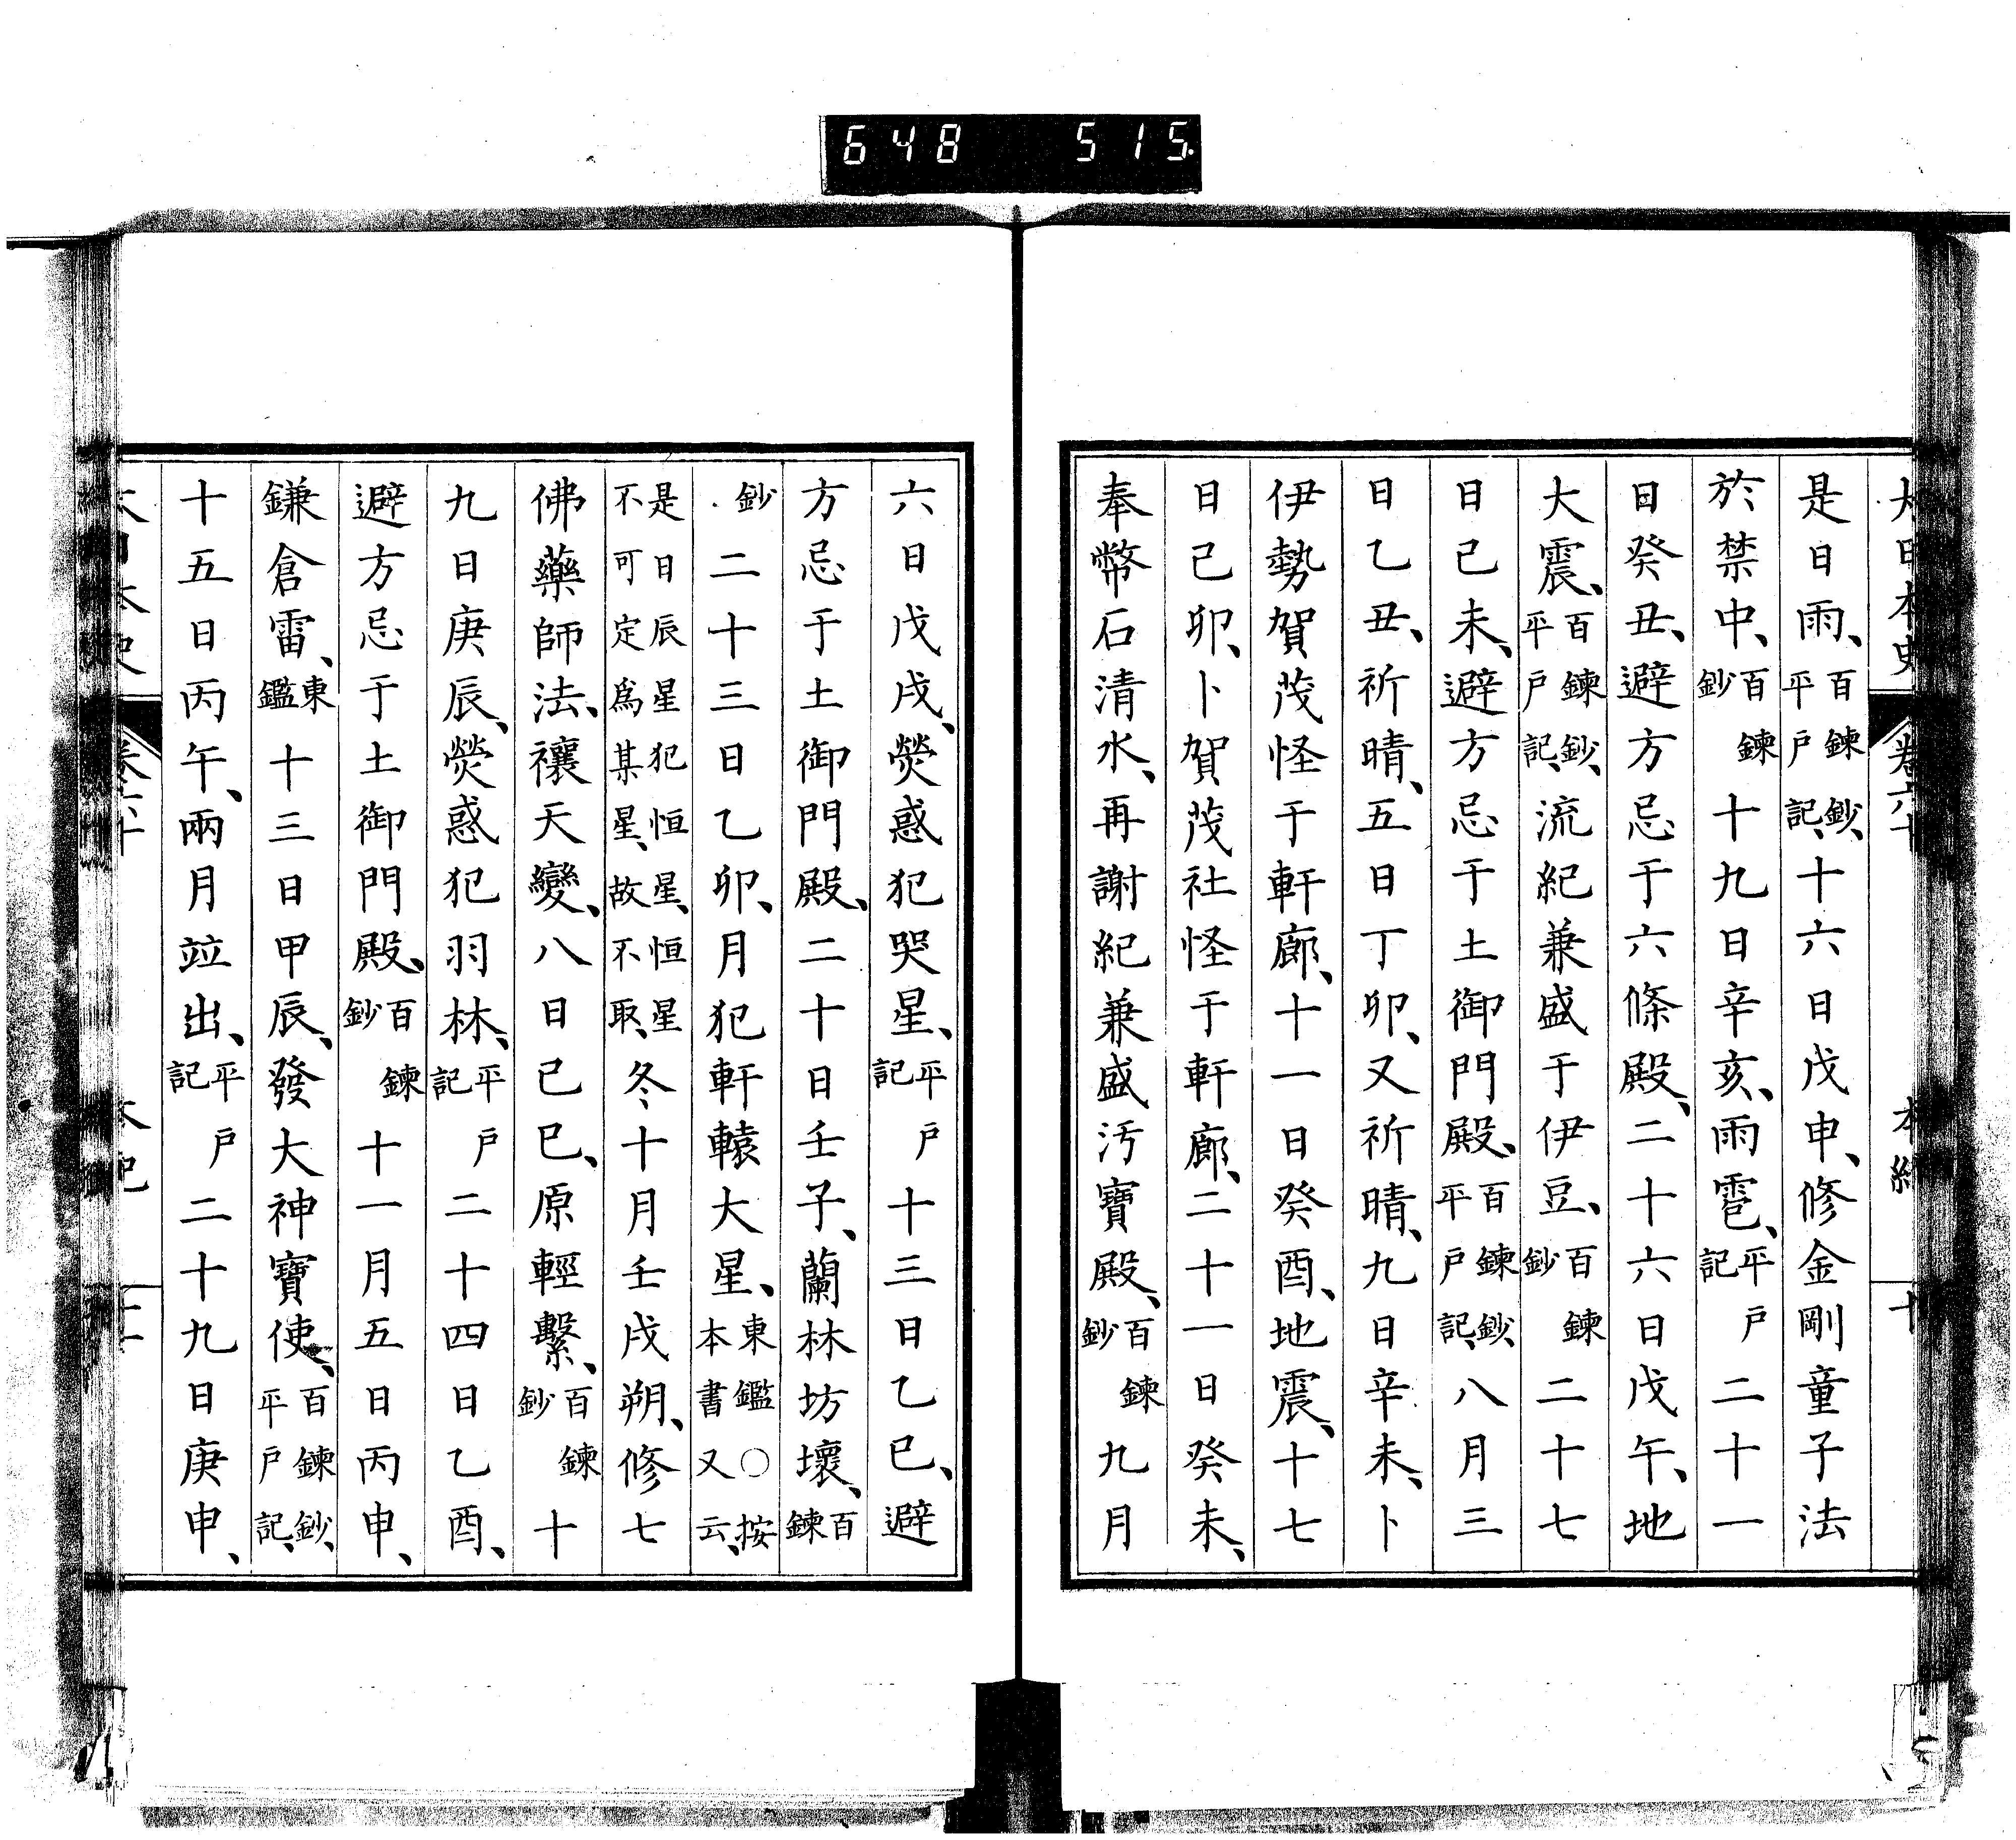 648 515
大日本史 卷六十 本紀 十
是日雨、百鍊鈔、平戶記、十六日戊申、修金剛童子法
於禁中、百鍊鈔十九日辛亥、雨雹、平戶記二十一
日癸丑、避方忌于六條殿、二十六日戊午、地
大震、百鍊鈔、平戶記、流紀兼盛于伊豆、百鍊鈔二十七
日己未、避方忌于土御門殿、百鍊鈔、平戶記、八月三
日乙丑、祈晴、五日丁卯、又祈晴、九日辛未、卜
伊勢賀茂怪于軒廊、十一日癸酉、地震、十七
日己卯、卜賀茂社怪于軒廊、二十一日癸未、
奉幣石清水、再謝紀兼盛汚寶殿、百鍊鈔九月
六日戊戌、熒惑犯哭星、平戶記十三日乙巳、避
方忌于土御門殿、二十日壬子、蘭林坊壞、百鍊
鈔二十三日乙卯、月犯軒轅大星、東鑑〇按本書又云、
是日辰星犯恒星、恒星不可定爲某星、故不取、冬十月壬戌朔、修七
佛藥師法、禳天變、八日己巳、原輕繫、百鍊鈔十
九日庚辰、熒惑犯羽林、平戶記二十四日乙酉、
避方忌于土御門殿、百鍊鈔十一月五日丙申、
鎌倉雷、東鑑十三日甲辰、發大神寶使、百鍊鈔、平戶記、
十五日丙午、兩月竝出、平戶記二十九日庚申、
大日本史 卷六十 本紀